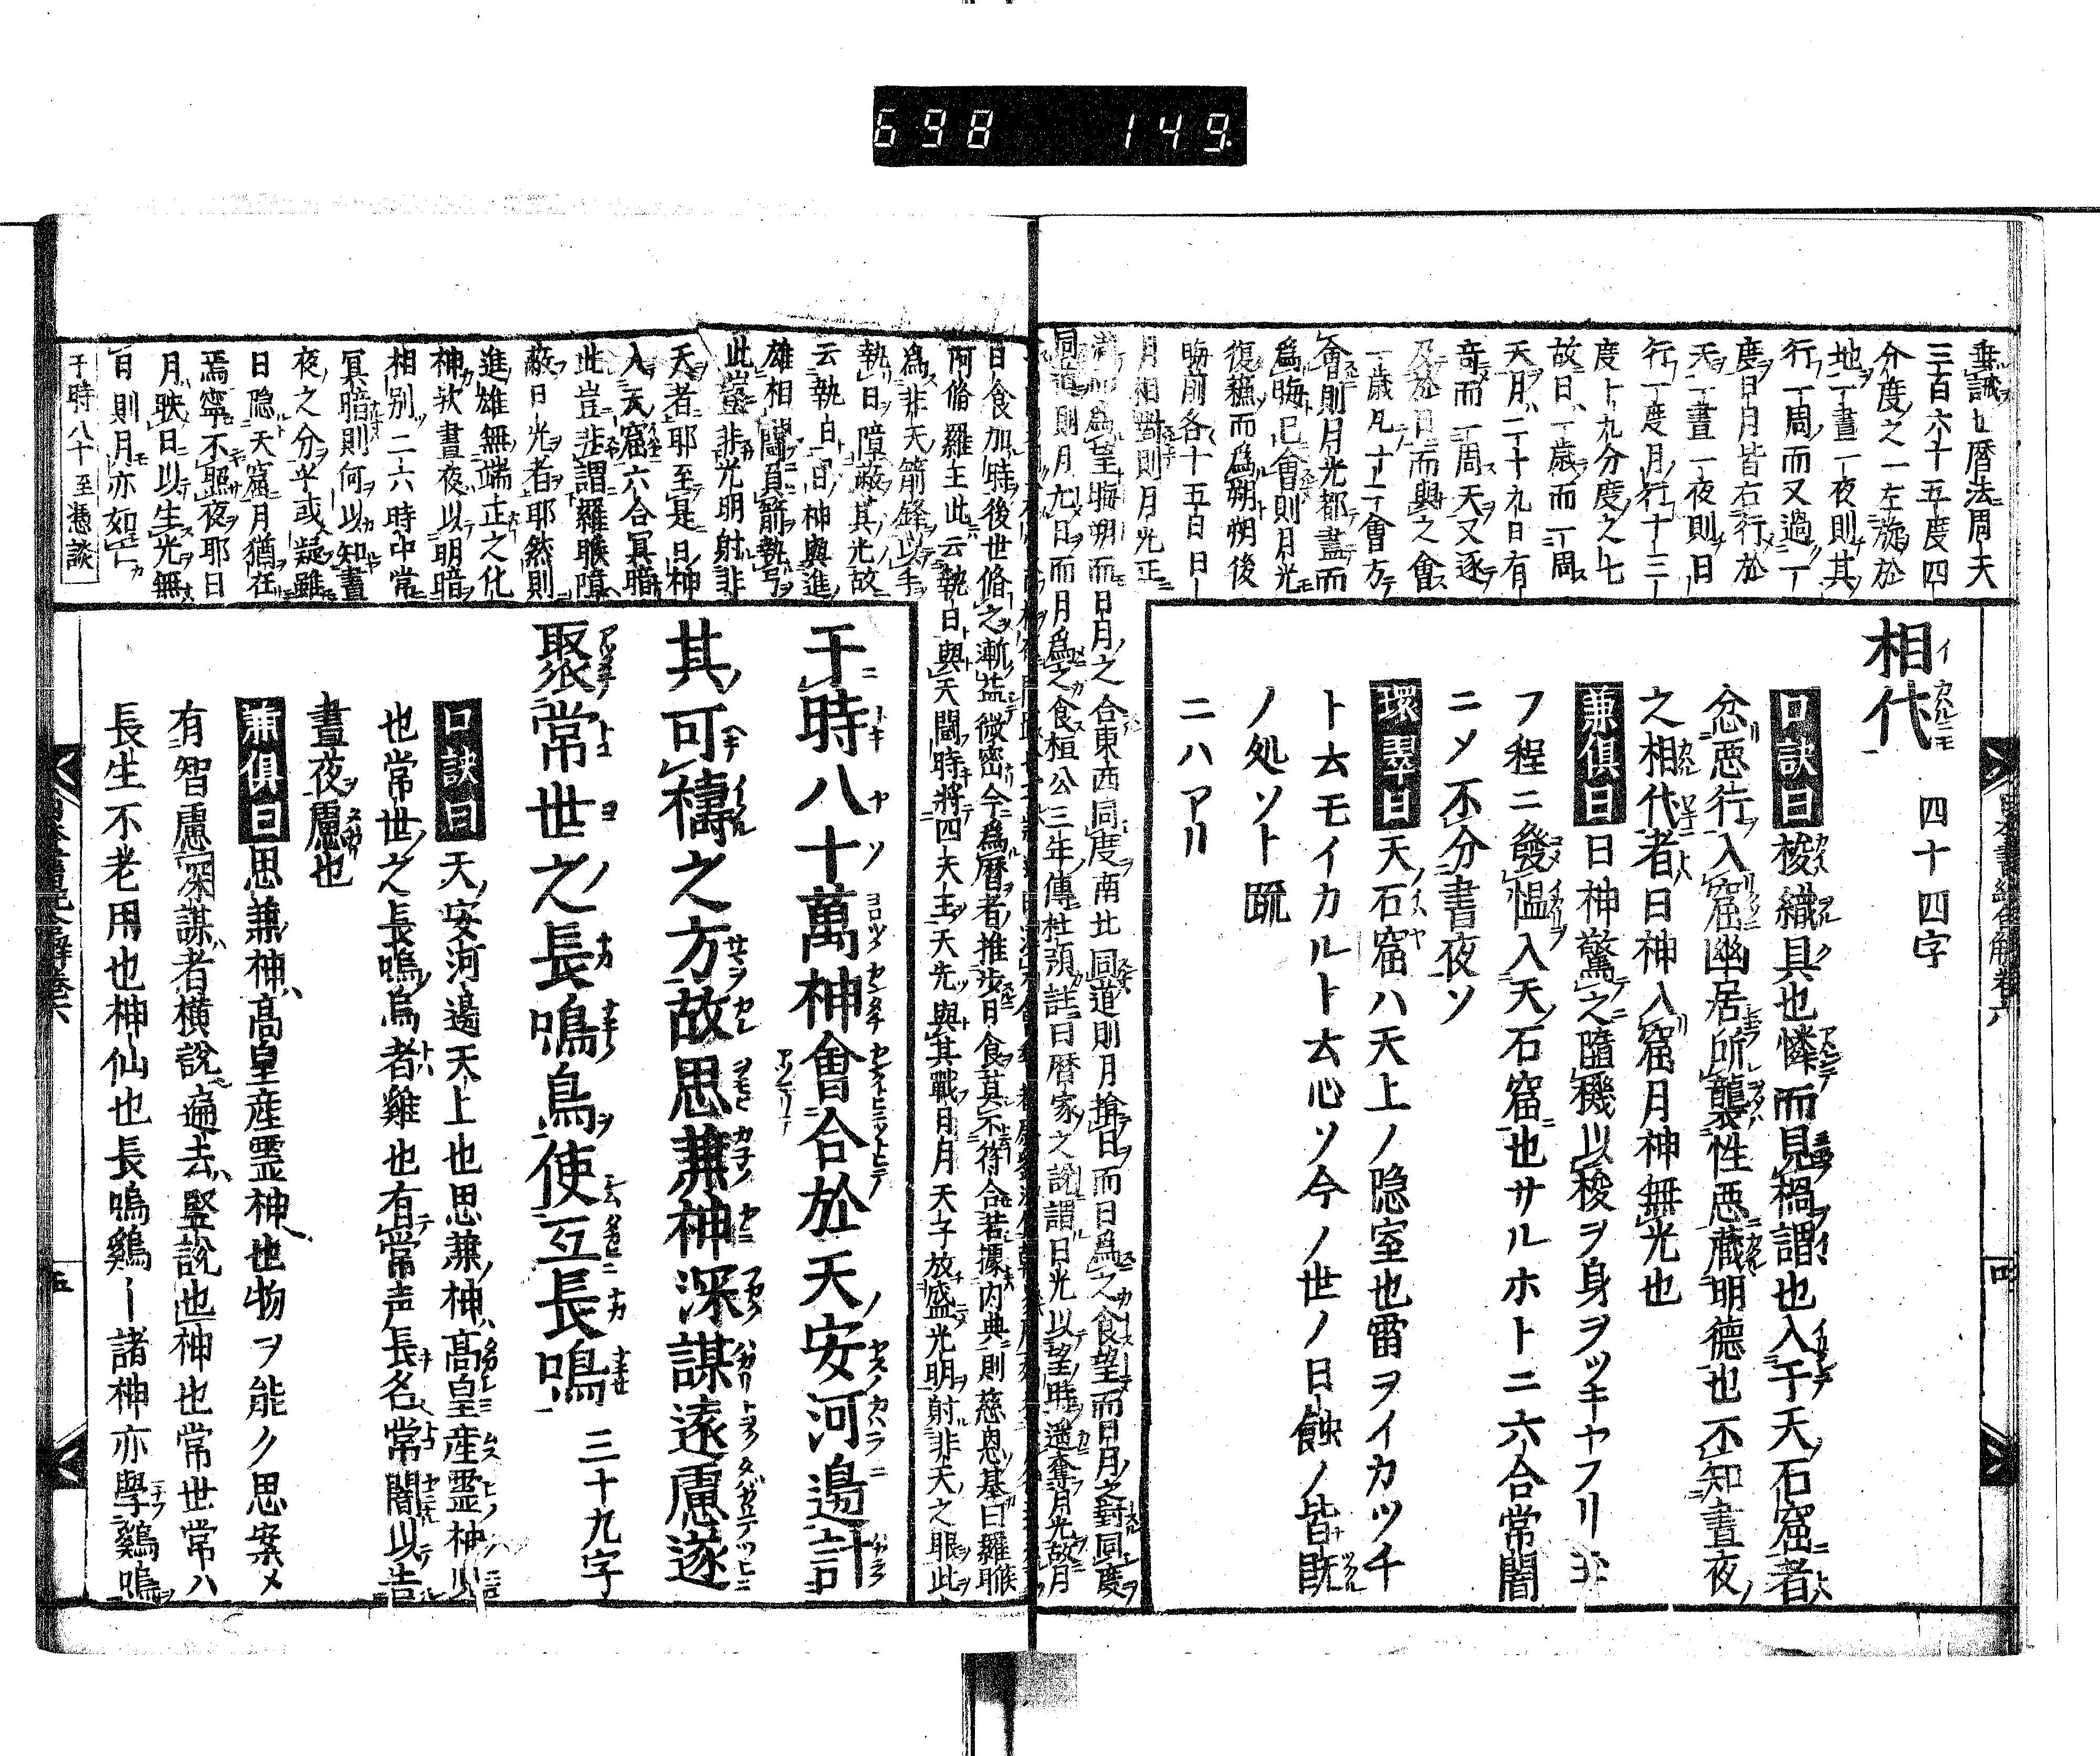 698 149
垂誠曰曆法周天
三百六十五度四
分度之一左旋於
地一晝一夜則其
行一周而又過一
度日月皆右行於
天一晝一夜則日
行一度月行十三
度十九分度之七
故日一歲而一周
天月二十九日有
奇而一周天又逐
及於日而與之會
一歲凡十二會方
會則月光都盡而
爲晦已會則月光
復蘇而爲朔朔後
晦前各十五日日
月相對則月光正
滿而爲望晦朔而日月之合東西同度南北同道則月揜日而日爲之食望而日月之對同度
同道則月亢日而月爲之食桓公三年傳杜預註曰曆家之說謂日光以望時遥奪月光故月
相代 四十四字
口訣曰梭織具也憐而見禍謂也入于天石窟者
忿惡行入窟幽居所襲性惡藏明德也不知晝夜
之相代者日神入窟月神無光也
兼俱曰日神驚之隨機以梭ヲ身ヲツキヤフリ玉
フ程ニ發慍入天石窟也サルホトニ六合常闇
ニメ不分晝夜ソ
環翠曰天石窟ハ天上ノ隠室也雷ヲイカツチ
ト云モイカルト云心ソ今ノ世ノ日蝕ノ皆既
ノ処ソト䟽
ニハアリ
日食加時後世脩之漸益微密今爲曆者推步日食莫不符合若據内典則慈恩基曰羅睺
阿脩羅主此云執日與天鬪時將四天主天先與其戰日月天子放盛光明射非天之眼此
爲非天箭鋒以手
執日障蔽其光故
云執日日神與進
雄相鬪負箭執弓
此豈非光明射非
天者耶至是日神
入天窟六合冥暗
此豈非謂羅睺障
蔽日光者耶然則
進雄無端正之化
神欤晝夜以明暗
相別二六時中常
冥暗則何以知晝
夜之分乎或疑雖
日隠天窟月猶在
焉寧不照夜耶日
月映日以生光無
日則月亦如亡
于時八十至慿談
于時八十萬神會合於天安河邉計
其可禱之方故思兼神深謀遠慮遂
聚常世之長鳴鳥使互長鳴 三十九字
口訣曰天安河邉天上也思兼神高皇産霊神児
也常世之長鳴鳥者雞也有常声長名常闇以告
晝夜慮也
兼俱曰思兼神高皇産霊神也物ヲ能ク思案メ
有智慮深謀者横說遍去竪說也神也常世常ハ
長生不老用也神仙也長鳴鷄ー諸神亦學鷄鳴